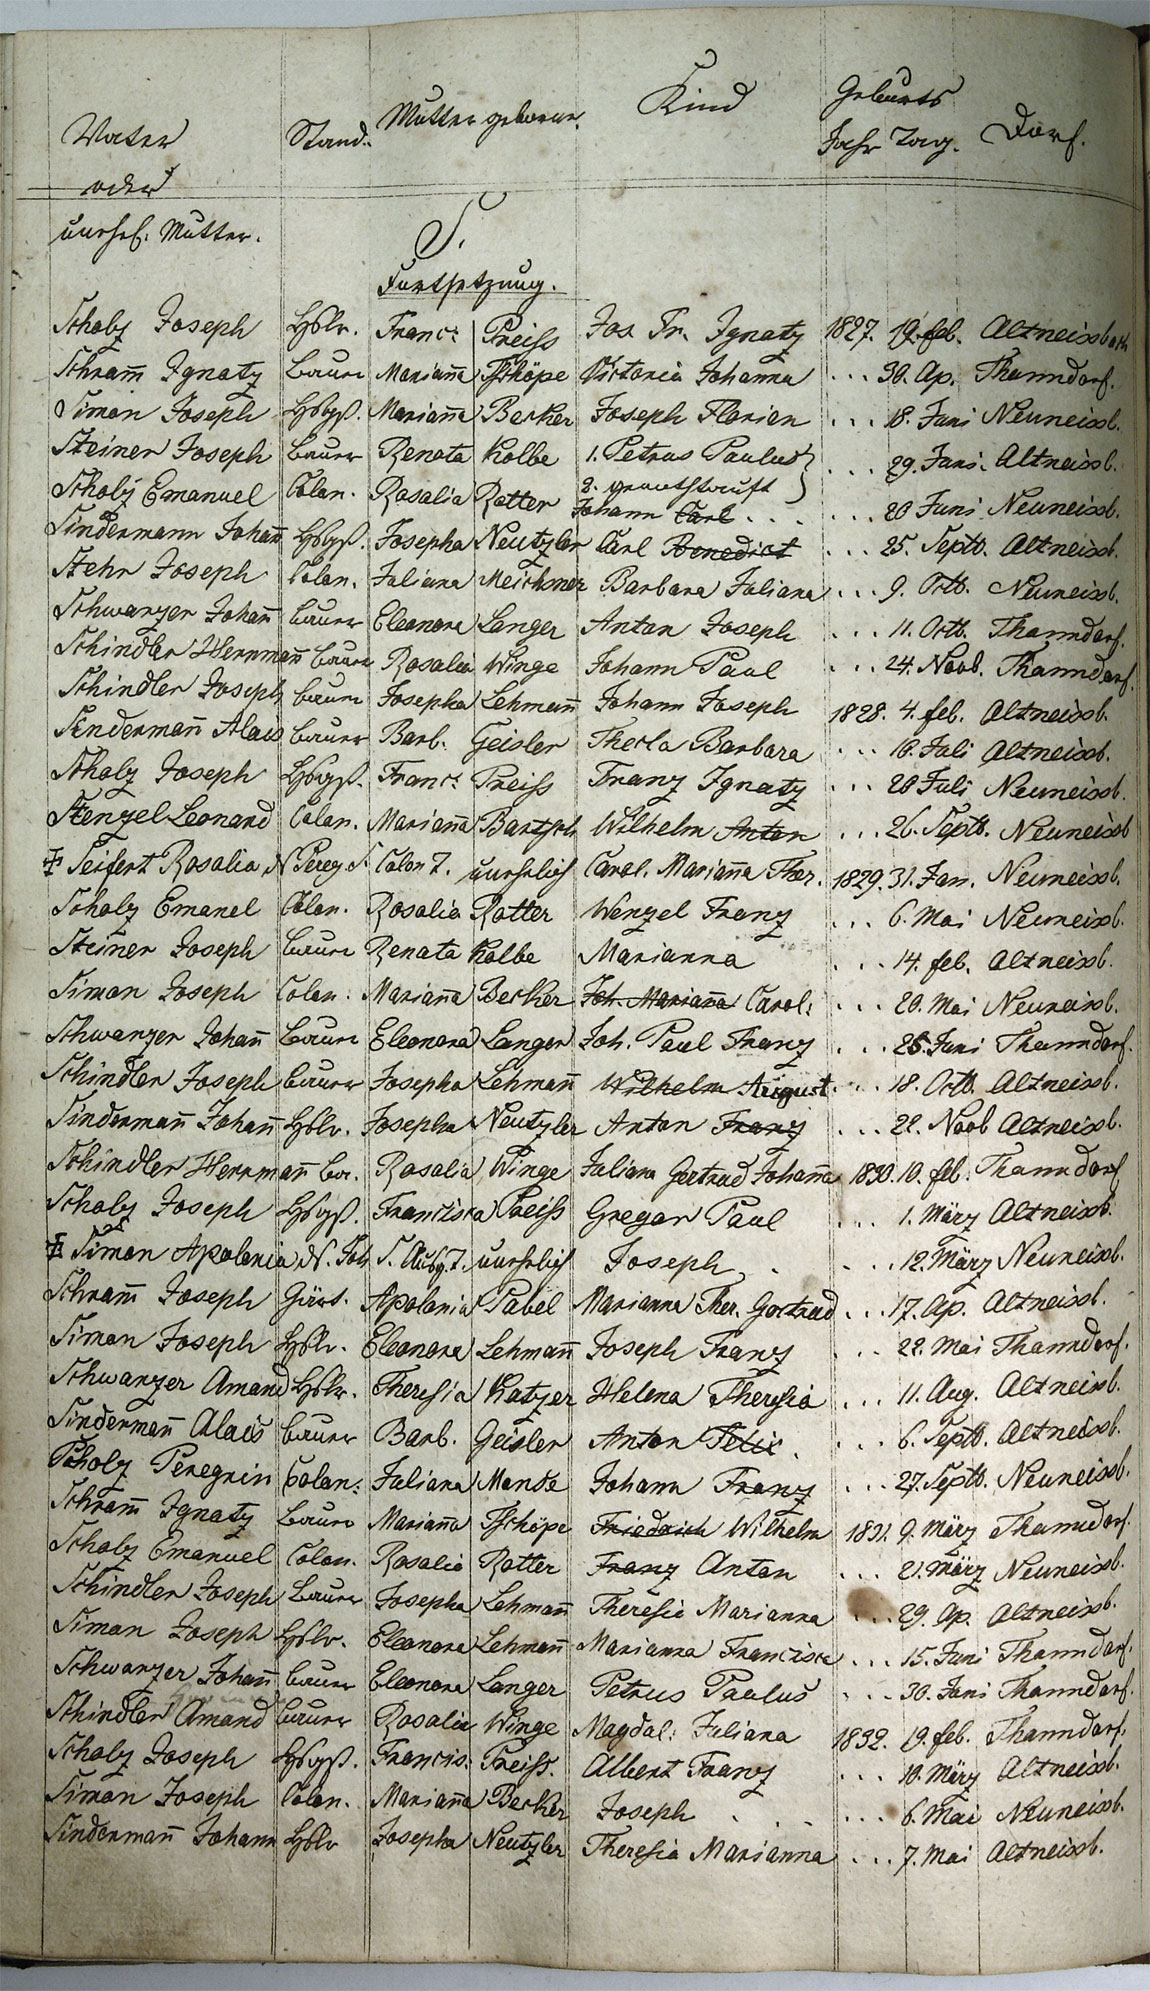 Vater Stand. Mutter geborne. Kind Geburts
Jahr Tag. Dorf.
oder
unehel. Mutter.
S.
Fortsetzung.
Scholz Joseph Hslr. Franc: Preiss Jos. Fr. Ignatz 1827. 19. feb. Altneissbach
Schram̄ Ignatz Bauer Marian̄a Tschöpe Victoria Johanna ... 30. Ap. Thanndorf.
Simon Joseph Hsbgß. Marian̄a Becker Joseph Florian ... 18. Juni Neuneissb.
Steiner Joseph Bauer Renata Kolbe 1. Petrus Paulus ... 29. Juni. Altneissb.
2. genothtauft
Scholz Emanuel Colon. Rosalia Rotter Johann Carl ... 20 Juni Neuneissb.
Sindermann Johan̄ Hsbgß. Josepha Neutzler Carl Benedict ... 25. Septb. Altneissb.
Stehr Joseph Colon. Juliana Meichsner Barbara Juliana ... 9. Octb. Neuneissb.
Schwarzer Johan̄ Bauer Eleonora Langer Anton Joseph ... 11. Octb. Thanndorf.
Schindler Herrman̄ Bauer Rosalia Winge Johann Paul ... 24. Novb. Thanndorf.
Schindler Joseph Bauer Josepha Lehman̄ Johann Joseph 1828. 4. feb. Altneissb.
Sindermān̄ Alois Bauer Barb. Geisler Thecla Barbara ... 16. Juli Altneissb.
Scholz Joseph Hsbgß. Franc: Preiss Franz Ignatz ... 28 Juli Neuneissb.
Stenzel Leonard Colon. Marian̄a Bartsch Wilhelm Anton ... 26. Septb. Neuneissb
Seifert Rosalia, N. Pereg S. Colon T. unehelich Carol. Mariān̄a Ther. 1829. 31. Jan. Neuneissb.
Scholz Emanel Colon. Rosalia Rotter Wenzel Franz ... 6. Mai Neuneissb.
Steiner Joseph Bauer Renata Kolbe Marianna ... 14. feb. Altneissb.
Simon Joseph Colon. Mariān̄a Becker Joh. Mariān̄a Carol: ... 20. Mai Neuneissb.
Schwarzer Johan̄ Bauer Eleonora Langer Joh. Paul Franz ... 25. Juni Thanndorf.
Schindler Joseph Bauer Josepha Lehman̄ Wilhelm August ... 18. Octb. Altneissb.
Sinderman̄ Johan̄ Hslr. Josepha Neutzler Anton Franz ... 22. Novb Altneissb.
Schindler Herrman̄ Br. Rosalia Winge Juliana Gertrud Johan̄a 1830. 10. feb. Thanndorf
Scholz Joseph Hsbgß. Francisca Preiss Gregor Paul ... 1. März Altneissb.
Simon Apolonia, N. Joh S. Ausg. T. unehelich Joseph ... 12. März Neuneissb.
Schram̄ Joseph Gärt. Apolonia Pabel Marianna Ther. Gertrud ... 17. Ap. Altneissb.
Simon Joseph Hslr. Eleonora Lehman̄ Joseph Franz ... 22. Mai Thanndorf.
Schwarzer Amand Hslr. Theresia Katzer Helena Theresia ... 11. Aug. Altneissb.
Sinderman̄ Alois Bauer Barb. Geisler Anton Felix ... 6. Septb. Altneissb.
Scholz Peregrin Colon. Juliana Mende Johann Franz ... 27. Septb. Neuneissb.
Schram̄ Ignatz Bauer Mariān̄a Tschöpe Friedrich Wilhelm 1831. 9. März Thanndorf.
Scholz Emanuel Colon. Rosalia Rotter Franz Anton ... 21. März Neuneissb.
Schindler Joseph Bauer Josepha Lehman̄ Theresia Marianna ... 29. Ap. Altneissb.
Simon Joseph Hslr. Eleonora Lehman̄ Marianna Francisca ... 15. Juni Thanndorf.
Schwarzer Johan̄ Bauer Eleonora Langer Petrus Paulus ... 30. Juni Thanndorf.
Schindler Amand Bauer Rosalia Winge Magdal: Juliana 1832. 19. feb. Thanndorf.
Scholz Joseph Hsbgß. Francis: Preiss. Albert Franz ... 10. März Altneissb.
Simon Joseph Colon. Mariān̄a Becker Joseph ... 6. Mai Neuneissb.
Sinderman̄ Johann Hslr Josepha Neutzler Theresia Marianna ... 7. Mai Altneissb.